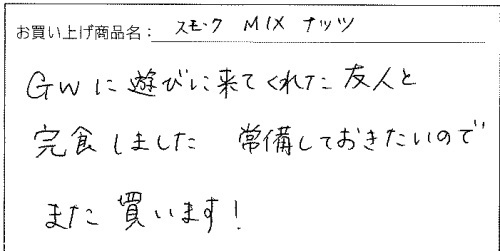 お買い上げ商品名: スモーク MIX ナッツ
GWに遊びに来てくれた友人と
完食しました 常備しておきたいので
また買います!